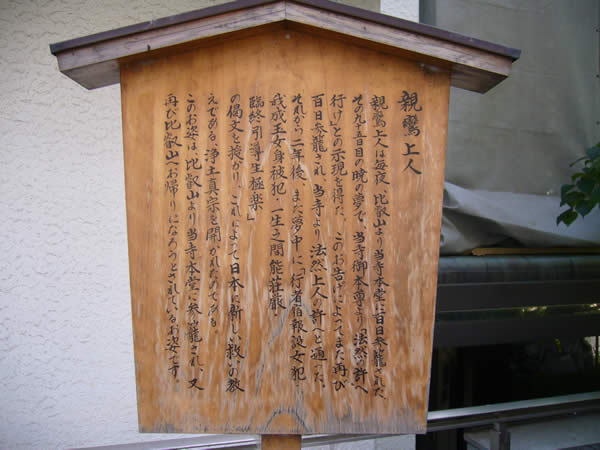 親鸞上人
親鸞上人は毎夜、比叡山より当寺本堂に百日参籠された。
その九十五日目の暁の夢で、当寺御本尊より「法然の許へ
行け」との示現を得た。このお告げによってまた再び
百日参籠され、当寺より法然上人の許へと通った。
それから二年後、また夢中に「行者宿報設女犯・
我成玉女身被犯・一生之間能荘厳・
臨終引導生極楽」
の偈文を授かり、これによって日本に新しい救いの教
えである、浄土真宗を開かれたのである。
このお姿は、比叡山より当寺本堂に参籠され、又
再び比叡山へお帰りになろうとされているお姿です。